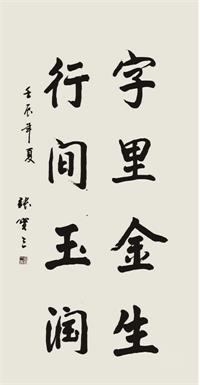 字里金生
行间玉润
壬辰年夏
张宝三